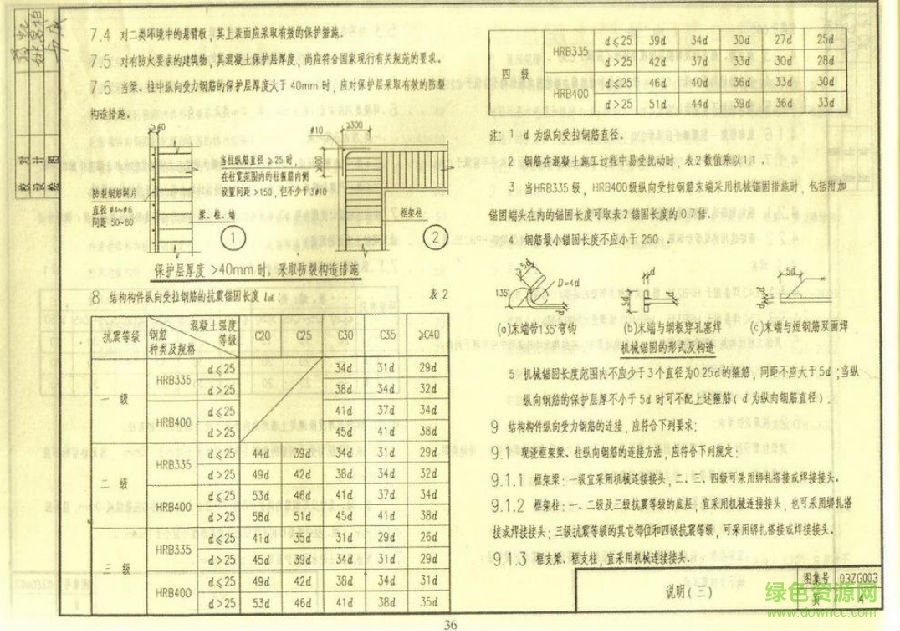 7.4 对二类环境中的悬臂板，其上表面应采取有效的保护措施。
7.5 对有防火要求的建筑物，其混凝土保护层厚度，尚应符合国家现行有关规范的要求。
7.6 当梁、柱中纵向受力钢筋的保护层厚度大于40mm时，应对保护层采取有效的防裂
构造措施。
≥60
防裂钢筋网片
间距 50~80
当柱纵筋直径 ≥25时，
在柱宽范围内的柱箍筋内侧
设置间距 >150，但不少于3φ10
梁、柱、墙
1
φ10
≥300
框架柱
2
保护层厚度 >40mm时，采取防裂构造措施
8 结构构件纵向受拉钢筋的抗震锚固长度 laE 表2
抗震等级 钢筋种类及规格 混凝土强度等级 C20 C25 C30 C35 ≥C40
一级 HRB335 d≤25 34d 31d 29d
d>25 38d 34d 32d
HRB400 d≤25 41d 37d 34d
d>25 45d 41d 38d
二级 HRB335 d≤25 44d 39d 34d 31d 29d
d>25 49d 42d 38d 34d 32d
HRB400 d≤25 53d 46d 41d 37d 34d
d>25 58d 51d 45d 41d 38d
三级 HRB335 d≤25 41d 35d 31d 29d 26d
d>25 45d 39d 34d 31d 29d
HRB400 d≤25 49d 42d 38d 34d 31d
d>25 53d 46d 41d 38d 35d
四级 HRB335 d≤25 39d 34d 30d 27d 25d
d>25 42d 37d 33d 30d 28d
HRB400 d≤25 46d 40d 36d 33d 30d
d>25 51d 44d 39d 36d 33d
注：1 d为纵向受拉钢筋直径。
2 钢筋在混凝土施工过程中易受扰动时，表2数值乘以1.1。
3 当HRB335级，HRB400级纵向受拉钢筋末端采用机械锚固措施时，包括附加
锚固端头在内的锚固长度可取表2锚固长度的0.7倍。
4 钢筋最小锚固长度不应小于250。
135°
5d
(a)末端带135°弯钩
(b)末端与钢板穿孔塞焊
(c)末端与短钢筋双面焊
机械锚固的形式及构造
5 机械锚固长度范围内不应少于3个直径为0.25d的箍筋，间距不应大于5d；当纵
纵向钢筋的保护层厚不小于5d时可不配上述箍筋（d为纵向钢筋直径）；
9 结构构件纵向受力钢筋的连接，应符合下列要求：
9.1 现浇框架梁、柱纵向钢筋的连接方法，应符合下列规定：
9.1.1 框架梁：一级宜采用机械连接接头，二、三、四级可采用绑扎搭接或焊接接头。
9.1.2 框架柱：一、二级及三级抗震等级的底层，宜采用机械连接接头，也可采用绑扎搭
接或焊接接头；三级抗震等级的其它部位和四级抗震等级，可采用绑扎搭接或焊接接头。
9.1.3 框支梁、框支柱，宜采用机械连接接头。
说明(三)
图集号 03ZG003
页 4
绿色资源网
www.downcc.com
36